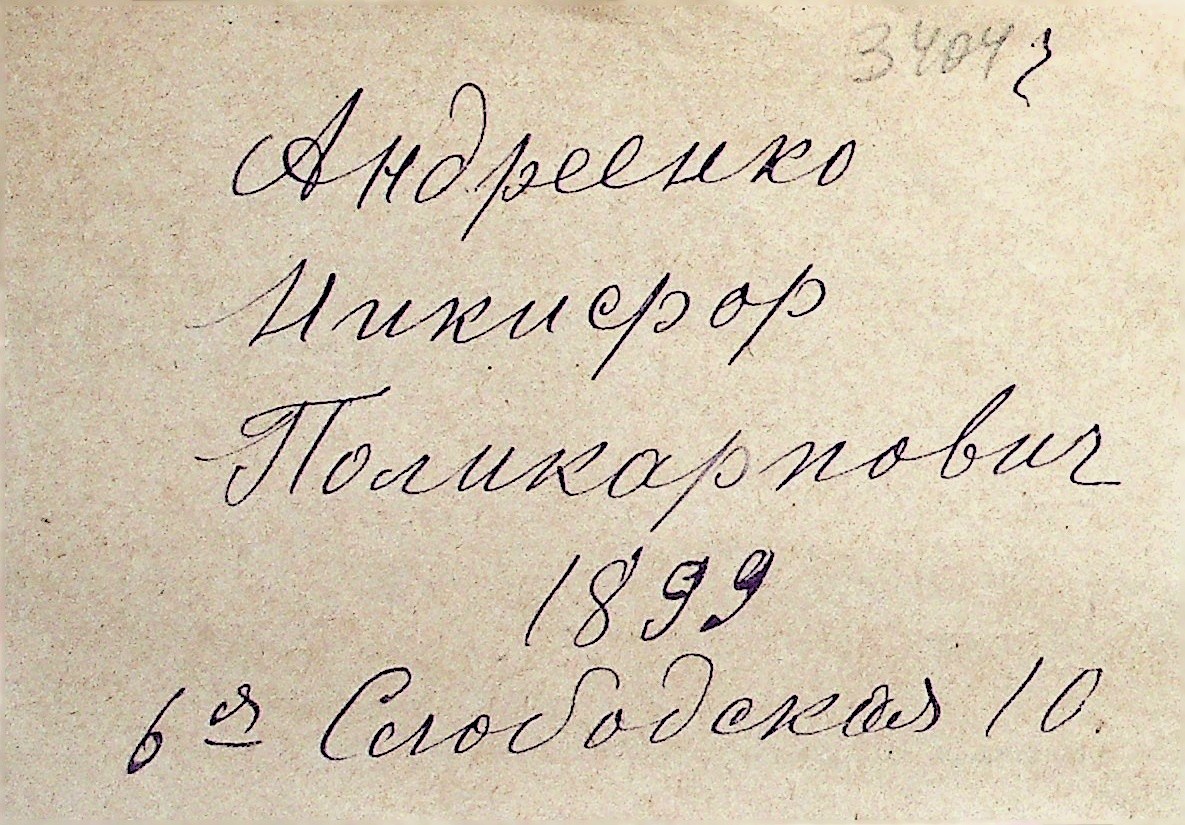 3404
Андреенко
Никифор
Поликарпович
1899
6я Слободская 10.